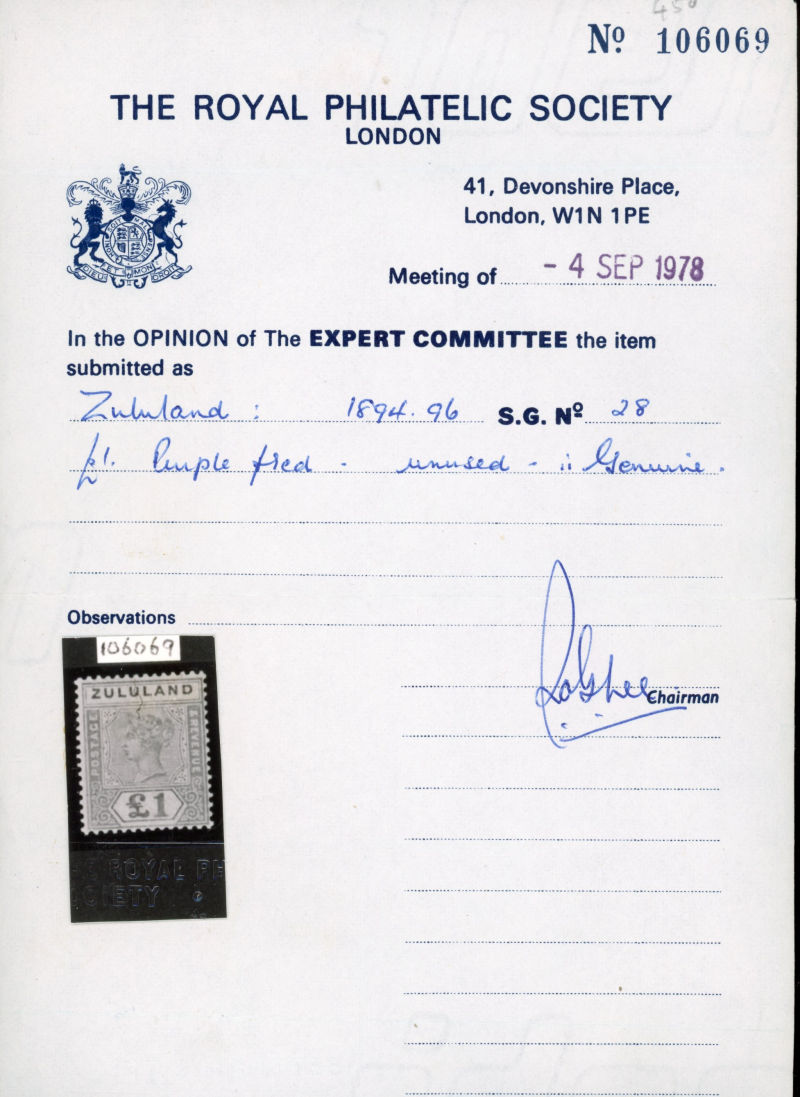 450
Nº 106069
THE ROYAL PHILATELIC SOCIETY
LONDON
41, Devonshire Place,
London, W1N 1PE
Meeting of - 4 SEP 1978
In the OPINION of The EXPERT COMMITTEE the item
submitted as
Zululand : 1894.96 S.G. Nº 28
£1. Purple & red - unused - is Genuine.
Observations
Chairman
106069
ZULULAND
POSTAGE
REVENUE
£1
ROYAL PH
CIETY